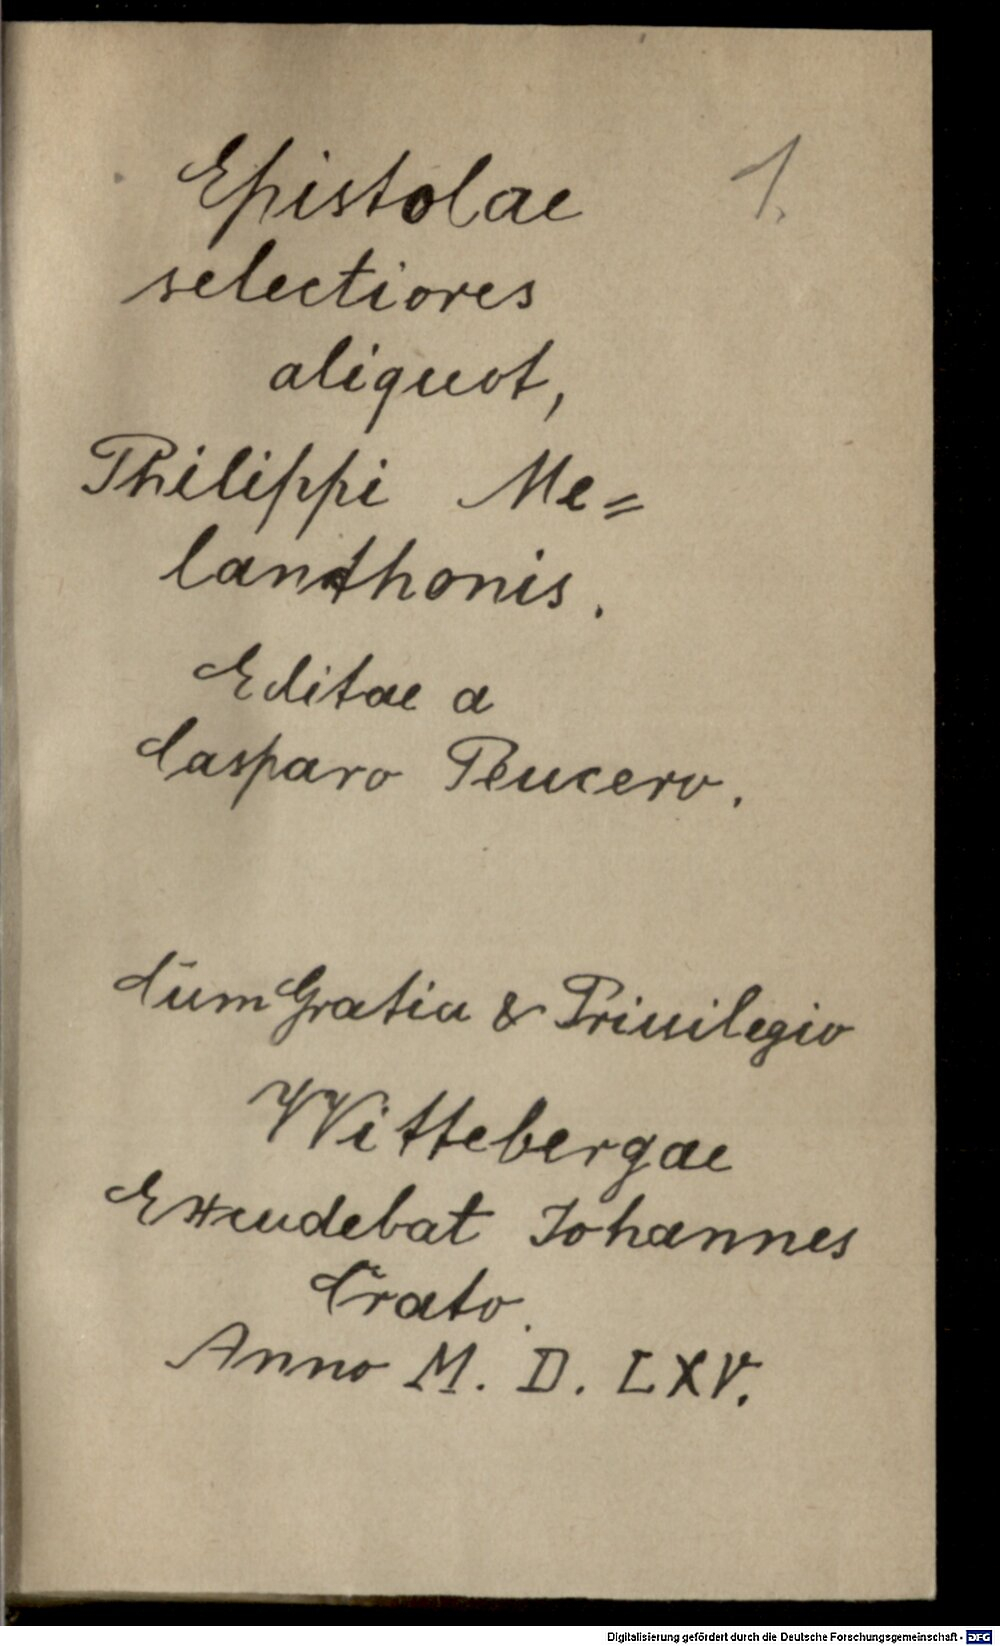 Epistolae 1.
selectiores
aliquot,
Philippi Me=
lanthonis.
Editae a
Casparo Peucero.
Cum Gratia & Priuilegio
Wittebergae
Excudebat Johannes
Crato.
Anno M. D. LXV.
Digitalisierung gefördert durch die Deutsche Forschungsgemeinschaft - DFG